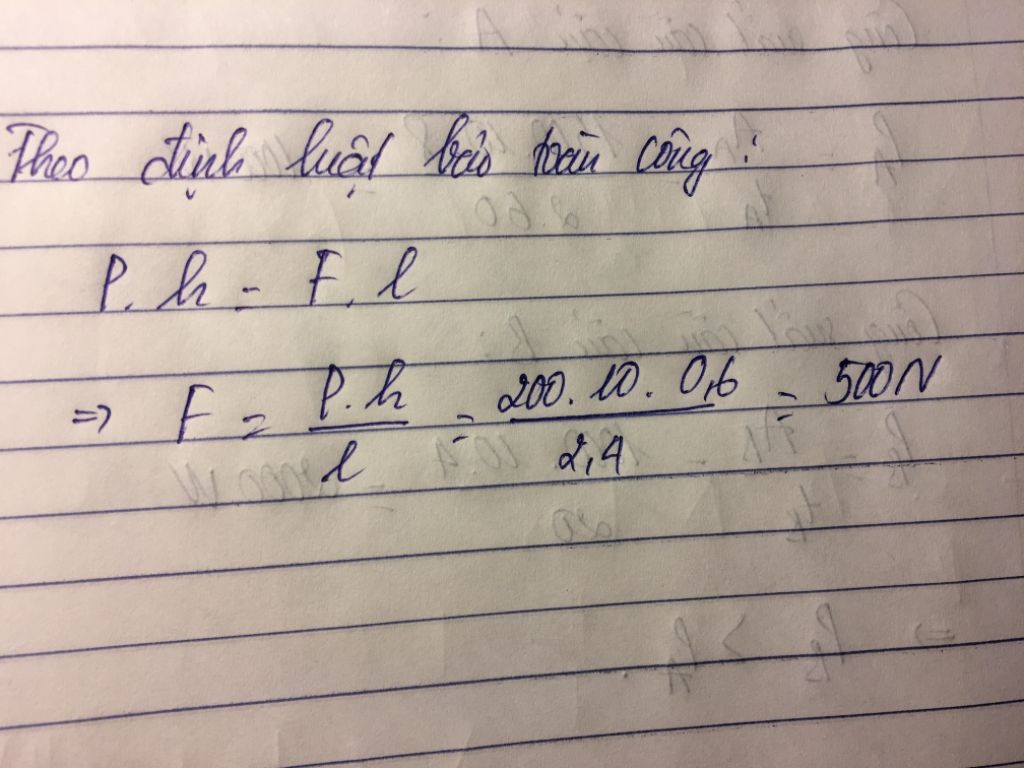 Theo định luật bảo toàn công :
P. h = F. l
=> F = P.h / l = 200. 10. 0,6 / 2,4 = 500N